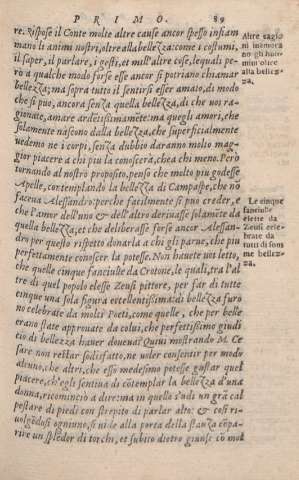 PRIMO. 89
re. Rispose il Conte molte altre cause ancor spesso infiam
mano li animi nostri, oltre alla bellezza: come i costumi,
il saper, il parlare, i gesti, et mill'altre cose, lequali pe-
rò a qualche modo forse esse ancor si potriano chiamar
bellezza; ma sopra tutto il sentirsi esser amato, di modo
che si può, ancora senza quella bellezza, di che voi ra-
gionate, amare ardētissimamēte: ma quegli amori, che
solamente nascono dalla bellezza, che superficialmente
vedemo ne i corpi, senza dubbio daranno molto mag-
gior piacere a chi piu la conoscerà, che a chi meno. Però
tornando al nostro proposito, penso che molto piu godesse
Apelle, contemplando la bellezza di Campaspe, che nō
faceva Alessandro: perche facilmente si può creder, e
che l'amor dell'uno & dell'altro derivasse solamēte da
quella bellezza, et che deliberasse forse ancor Alessan-
dro per questo rispetto donarla a chi gli parue, che piu
perfettamente conoscer la potesse. Non hauete voi letto,
che quelle cinque fanciulle da Crotone, le quali, tra l'al
tre di quel popolo elesse Zeusi pittore, per far di tutte
cinque una sola figura eccellentissima di bellezza furo
no celebrate da molti Poeti, come quelle, che per belle
erano state approuate da colui, che perfettissimo giudi
cio di bellezza hauer doueua? Quiui mostrando M. Ce
sare non restar sodisfatto, ne voler consentir per modo
alcuno, che altri, che esso medesimo potesse gustar quel
piacere, ch'egli sentiua di cōtemplar la bellezza d'una
donna, ricominciò a dire: ma in quello s'udì un gra cal
pestare di piedi con strepito di parlar alto: & cosi ri-
uolgēdosi ogniuno, si vide alla porta della stanza cōpa-
rire un splēdor di torchi, et subito dietro giunse cō mol
Altre cagio
ni inamora
no gli huo-
mini oltre
alla bellez-
za.
Le cinque
fanciulle
elette da
Zeusi cele-
brate da
tutti di som
me bellez-
za.